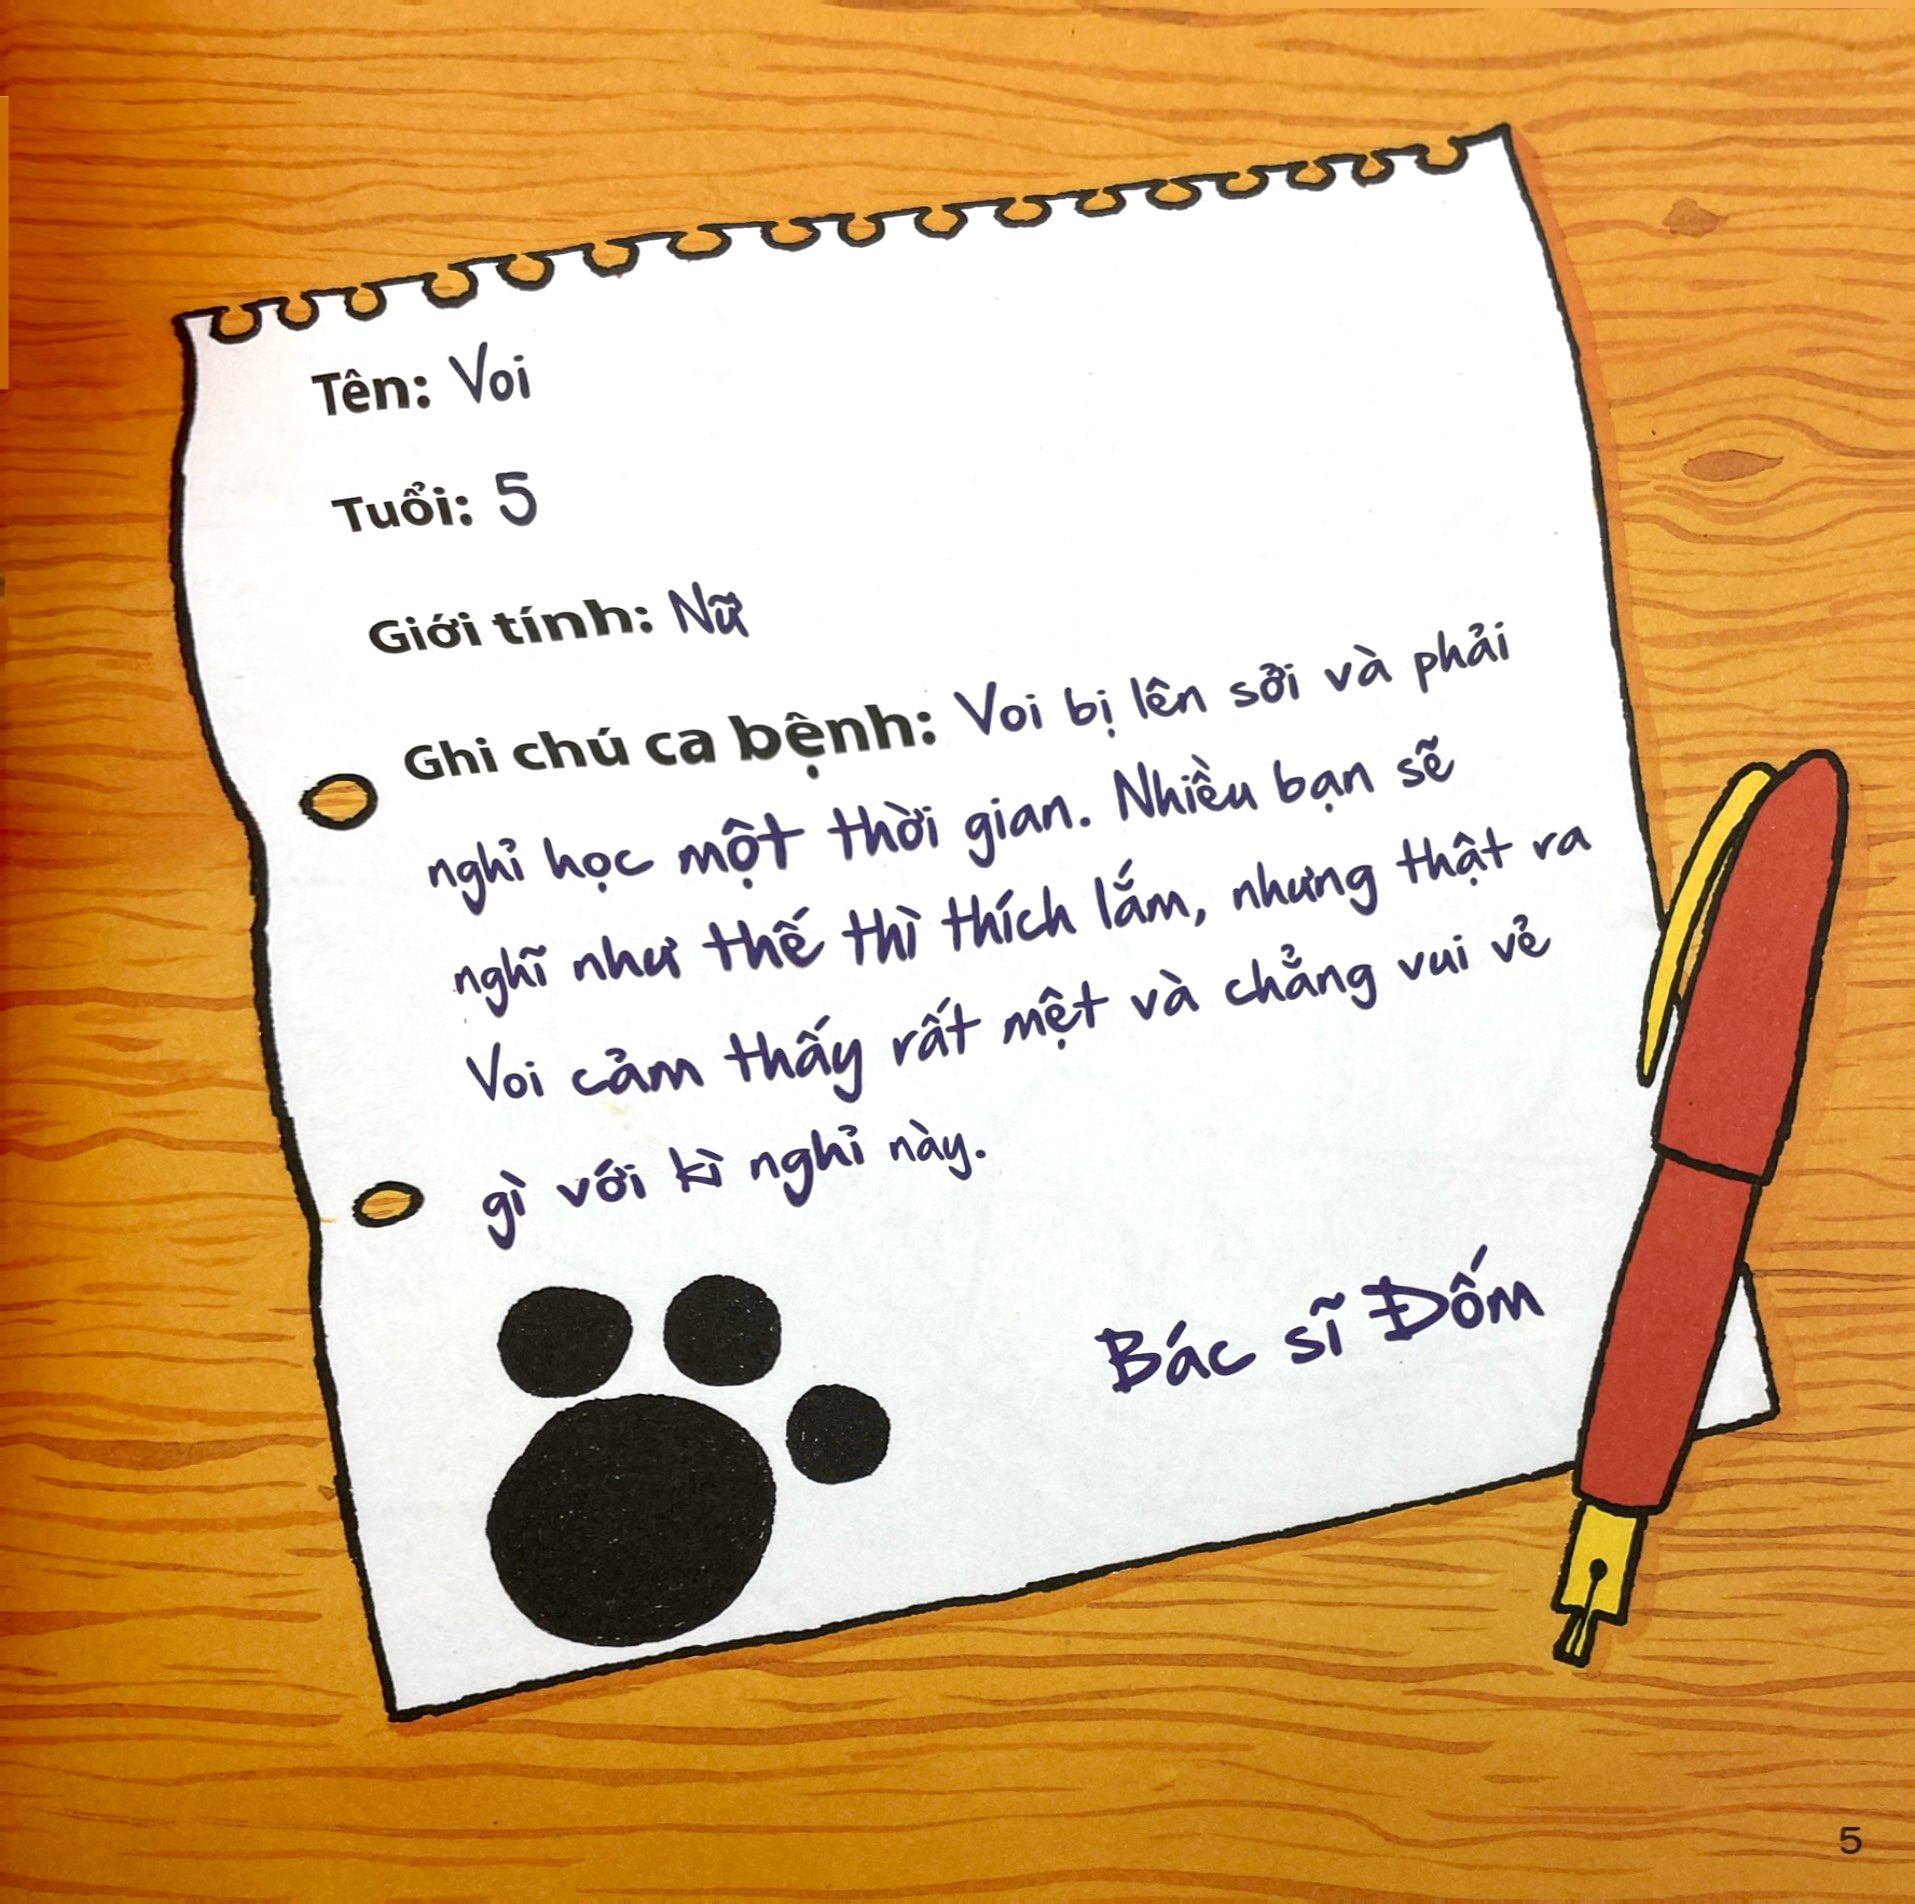 Tên: Voi
Tuổi: 5
Giới tính: Nữ
Ghi chú ca bệnh: Voi bị lên sởi và phải
nghỉ học một thời gian. Nhiều bạn sẽ
nghĩ như thế thì thích lắm, nhưng thật ra
Voi cảm thấy rất mệt và chẳng vui vẻ
gì với kì nghỉ này.
Bác sĩ Đốm
5